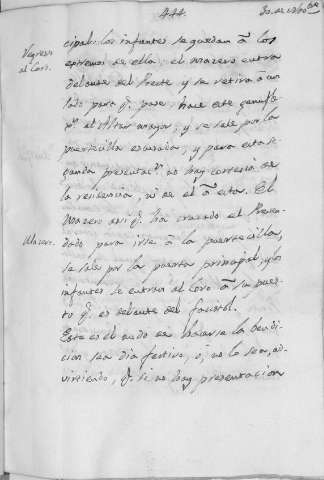 444.
30. de octobre
Regreso al Coro.
cipal: los infantes se quedan â los
extremos de ella: el mazero entra
delante del Preste y se retira â un
lado para q.e pase: hace este genufle-
x.n al Altar mayor, y se sale por la
puertecilla escusada, y para esta se-
gunda presentac.n no hay cortesia de
la residencia, ni de el â estos. El
Mazero.
Mazero asi q.e ha cruzado el Preven-
dado para irse â la puertecilla,
se sale por la puerta principal, y los
infantes se entran al Coro â su pues-
to q.e es delante del facistol.
Este es el modo de hacerse la bendi-
cion sea dia festivo, ô, no lo sea, ad-
virtiendo, q.e si no hay presentacion